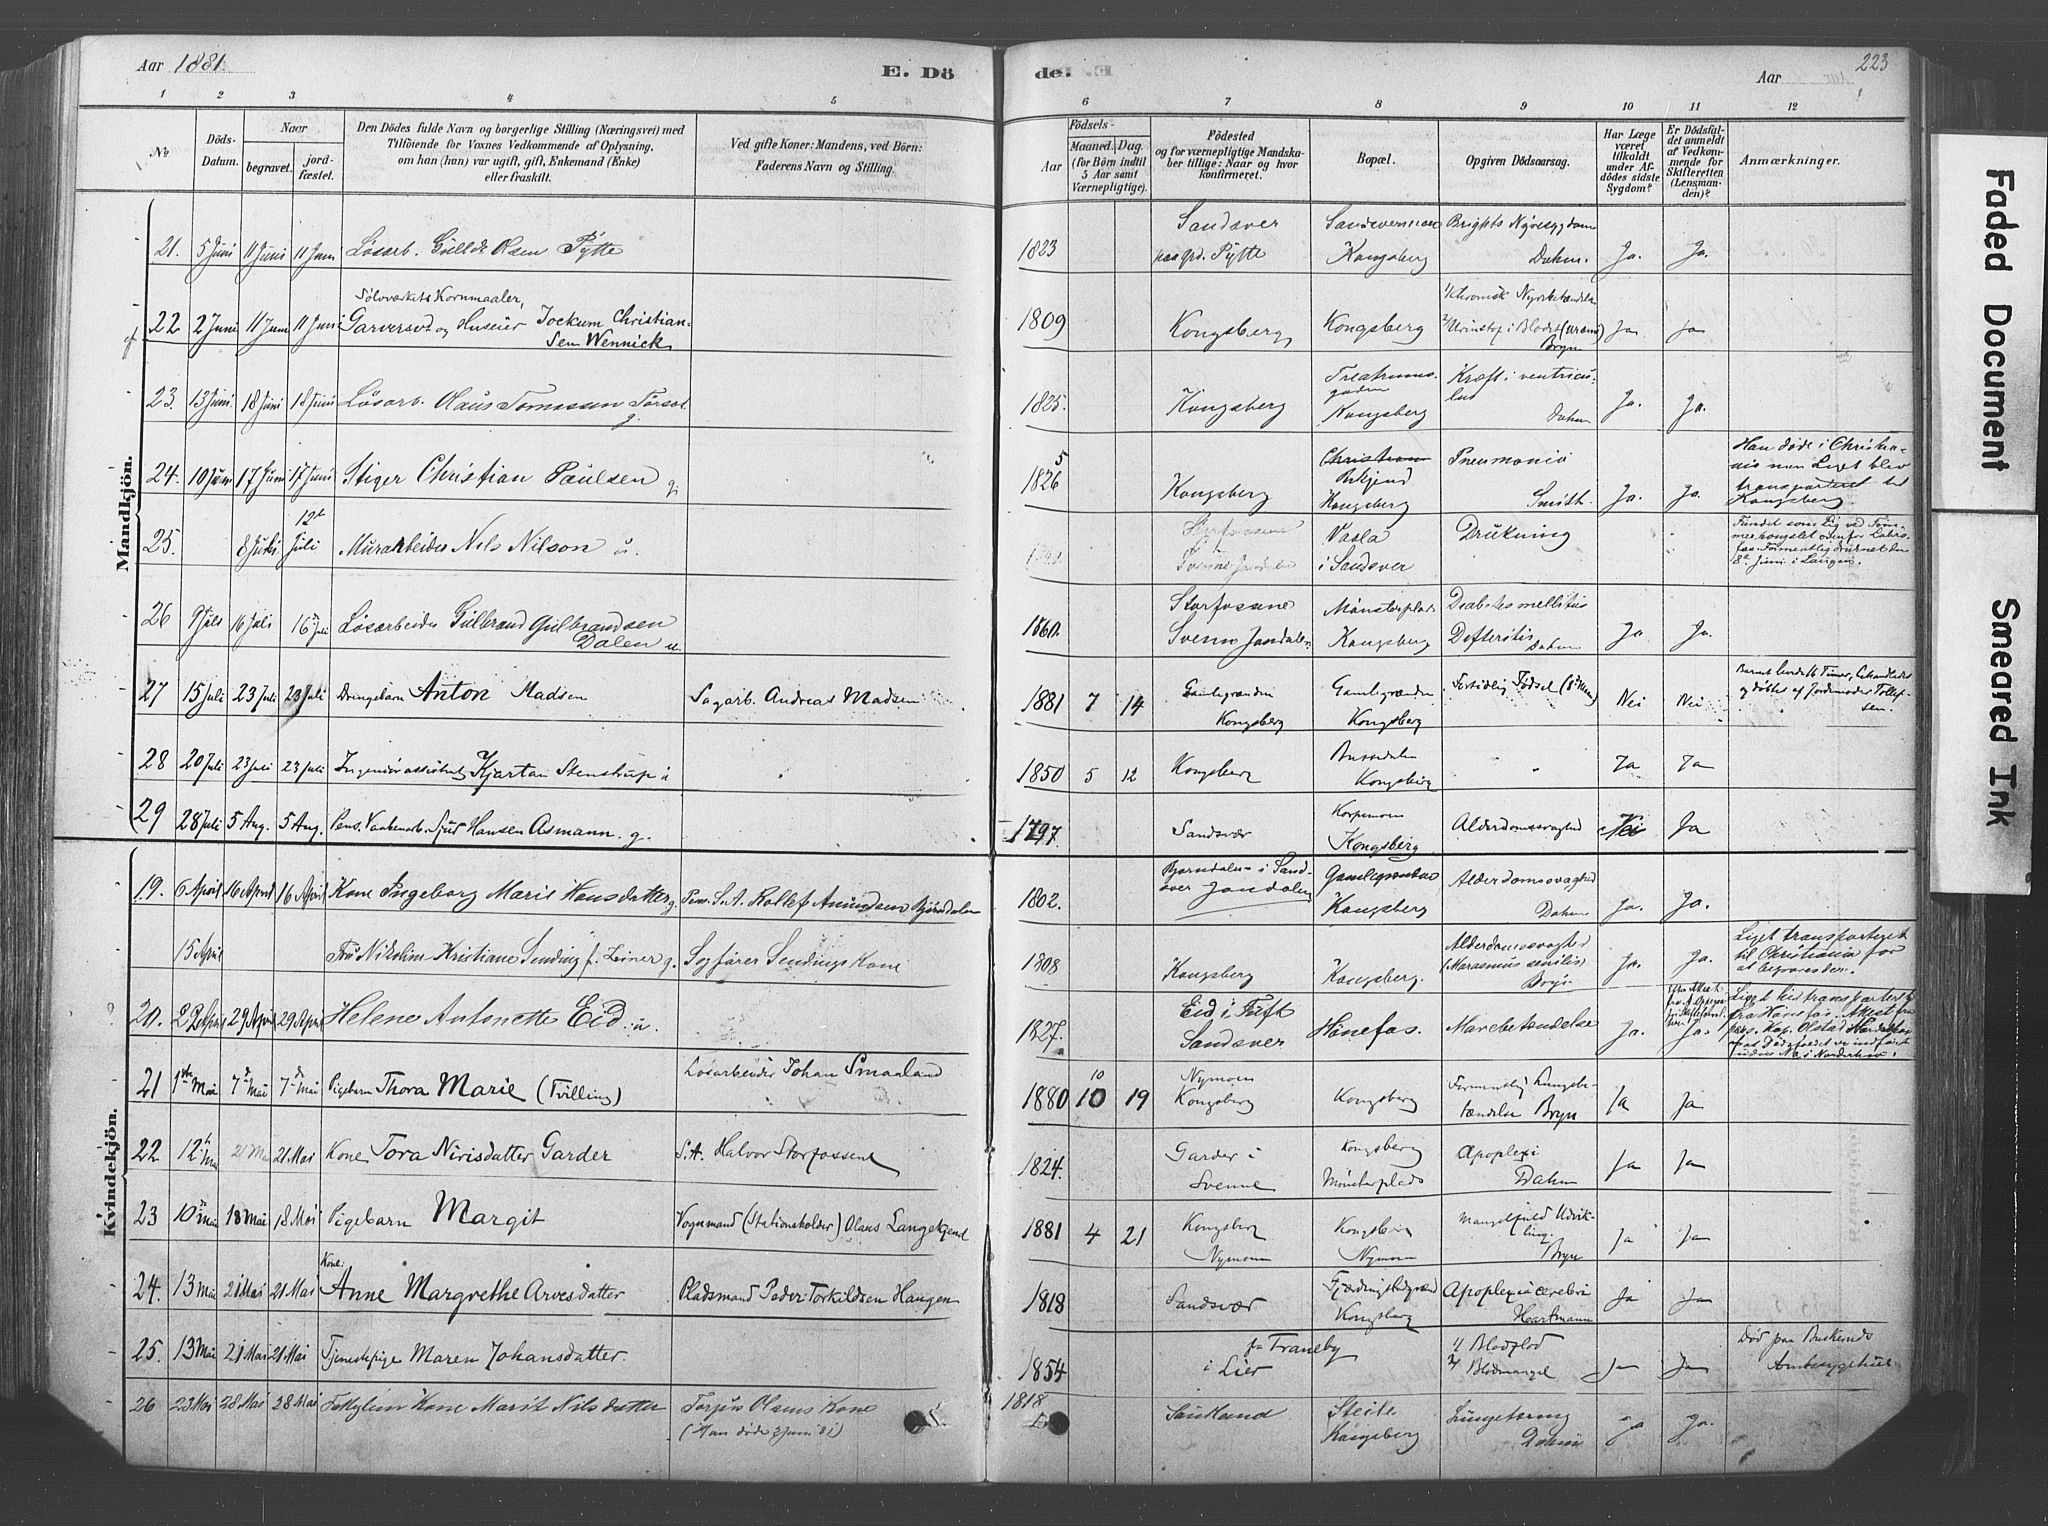 Aar 1881
E. Dö
de.
Aar
223
1 2 3 4 5 6 7 8 9 10 11 12
No
Döds-
Datum.
Naar
begravet.
jord-
fæstet.
Den Dödes fulde Navn og borgerlige Stilling (Næringsvei) med
Tilföiende for Voxnes Vedkommende af Oplysning,
om han (hun) var ugift, gift, Enkemand (Enke)
eller fraskilt.
Ved gifte Koner: Mandens, ved Börn:
Faderens Navn og Stilling.
Födsels-
Aar
Maaned. Dag.
(for Börn indtil
5 Aar samt
Værnepligtige).
Födested
og for værnepligtige Mandska-
ber tillige: Naar og hvor
konfirmeret.
Bopæl.
Opgiven Dödsaarsag.
Har Læge
været
tilkaldt
under Af-
dödes sidste
Sygdom?
Er Dödsfal-
det anmeldt
af Vedkom-
mende for
Skifteretten
(Lensman-
den)?
Anmærkninger.
Mandkjön.
21. 5 Juni 11 Juni 11 Juni Løsarb. Gulld Olsen Pytte 1823 Sandsver
paa Gd. Pytte
Kongsberg
Brights Nyresygdom
Dahm. Ja. Ja.
22 2 Juni 11 Juni 11 Juni Sølvverkets Kornmaaler,
Garversvd og Huseier Jockum Christian-
Sem Wennick
1809 Kongsberg Kongsberg 1/ Chronisk Nyrebetændelse
2/ Urinstof i Blodet (Uræmi)
Bryn Ja Ja
23. 13 Juni 18 Juni 18 Juni Løsarb. Olaus Tomassen
g.
1825. Kongsberg
Kongsberg
Kræft i ventricu-
lus
Dahm Ja. Ja.
24. 10 Juni 17 Juni 17 Juni Stiger Christian Paulsen g. 1826 5 Kongsberg
Kongsberg
Pneumonia
Smith. Ja. Ja.
Han døde i Christia-
nia men Liget blev
transporteret til
Kongsberg.
25. 8 Juli 12te Juli Murarbeider Nils Nilson u.
Storfossene
Svenne Jondalen
i Sandsver
Drukning
Fundet som Lig ved Tøm-
8de Juni i Laagen.
26 9 Juli 16 Juli 16 Juli Løsarbeider Gulbrand Gulbrandsen
Dalen u.
1860. Storfossene
Svenne Jondalen
Mønsterplads
Kongsberg
Diabetes mellitus
Defteritis Dahm Ja Ja.
27 15 Juli 23 Juli 23 Juli Drengebarn Anton Madsen Sagarb. Andreas Madsen
1881 7 14 Gamlegrænden
Kongsberg
Gamlegrænden
Kongsberg
Fortidlig Fødsel (8 Mdr) Nei Nei
Barnet levede 16 Timer, behandledes
og døbtes af Jordemoder Tollef-
sen.
28 20 Juli 23 Juli 23 Juli Ingeniørassistent Kjartan Stenstrup u 1850 5 12 Kongsberg
Kongsberg " Ja Ja
29 28 Juli 5 Aug. 5 Aug. Pens. Vaabenarb. Sjur Hansen Asmann. g. 1797. Sandsvær
Korpemoen
Kongsberg
Alderdomssvaghed Nei Ja
Kvindekjön.
19. 6 April 16 April 16 April Kone Ingeborg Marie Hansdatter g. Pens. S.A. Rollef Amundsen Bjørndalen
1802. Bjørndalen i Sand-
sver Jondalen
Gamlegrænden
Kongsberg
Alderdomssvaghed
Dahm Ja. Ja.
15 April Fru Nikoline Kristiane Sending f. Leiner g. Sagfører Sendings Kone
1808 Kongsberg Kongsberg.
Alderdomssvaghed
(Marasmus senilis)
Bryn Ja. Ja.
Liget transporteret
til Christiania for
at begraves der.
20. 22 April 29 April 29 April Helene Antonette Eid. u. 1827. Eid i Tuft
Sandsver Hønefos. Marvbetændelse Ja. Ja.
Liget hid transporteret
fra Hønefos. Attest fra
21 1ste Mai 7de Mai 7de Mai Pigebarn Thora Marie (Tvilling) Løsarbeider Johan Smaaland
1880 10 10 19 Nymoen
Kongsberg Kongsberg
Formentlig Lungebe-
tændelse Bryn Ja Ja
22 12te Mai 21 Mai 21 Mai Kone Tora Nirisdatter Garder S.A. Halvor Storfossene
1824. Garder i
Svenne
Kongsberg
Mønsterplads
Apoplexi
Dahm Ja Ja
23 10de Mai 18 Mai 18 Mai Pigebarn Margit Vognmand (Stationsholder) Olaus Langekjend
1881 4 21 Kongsberg
Nymoen
Kongsberg
Nymoen
Mangelfuld Udvik-
ling.
Bryn Ja Ja
24. 13 Mai 21 Mai 21 Mai Kone.
Anne Margrethe Arvesdatter Pladsmand Peder Torkildsen Haugen
1818 Sandsvær
Kongsberg
Apoplexia cerebri
Heartmann Ja Ja
25. 13 Mai 21 Mai 21 Mai Tjenestepige Maren Johansdatter.
1854 fra Traneby
i Lier
1/ Blodflod
2/ Blodmangel Ja Ja
Død paa Buskeruds
Amtssygehus
26 23 Mai 28 Mai 28 Mai Kone Marit Nilsdatter Torjus Olsens Kone
(Man døde 2 Juni 81)
1818 Sauland
Steile
Kongsberg
Lungetæring
Dahm Ja Ja.
Faded Document
Smeared Ink